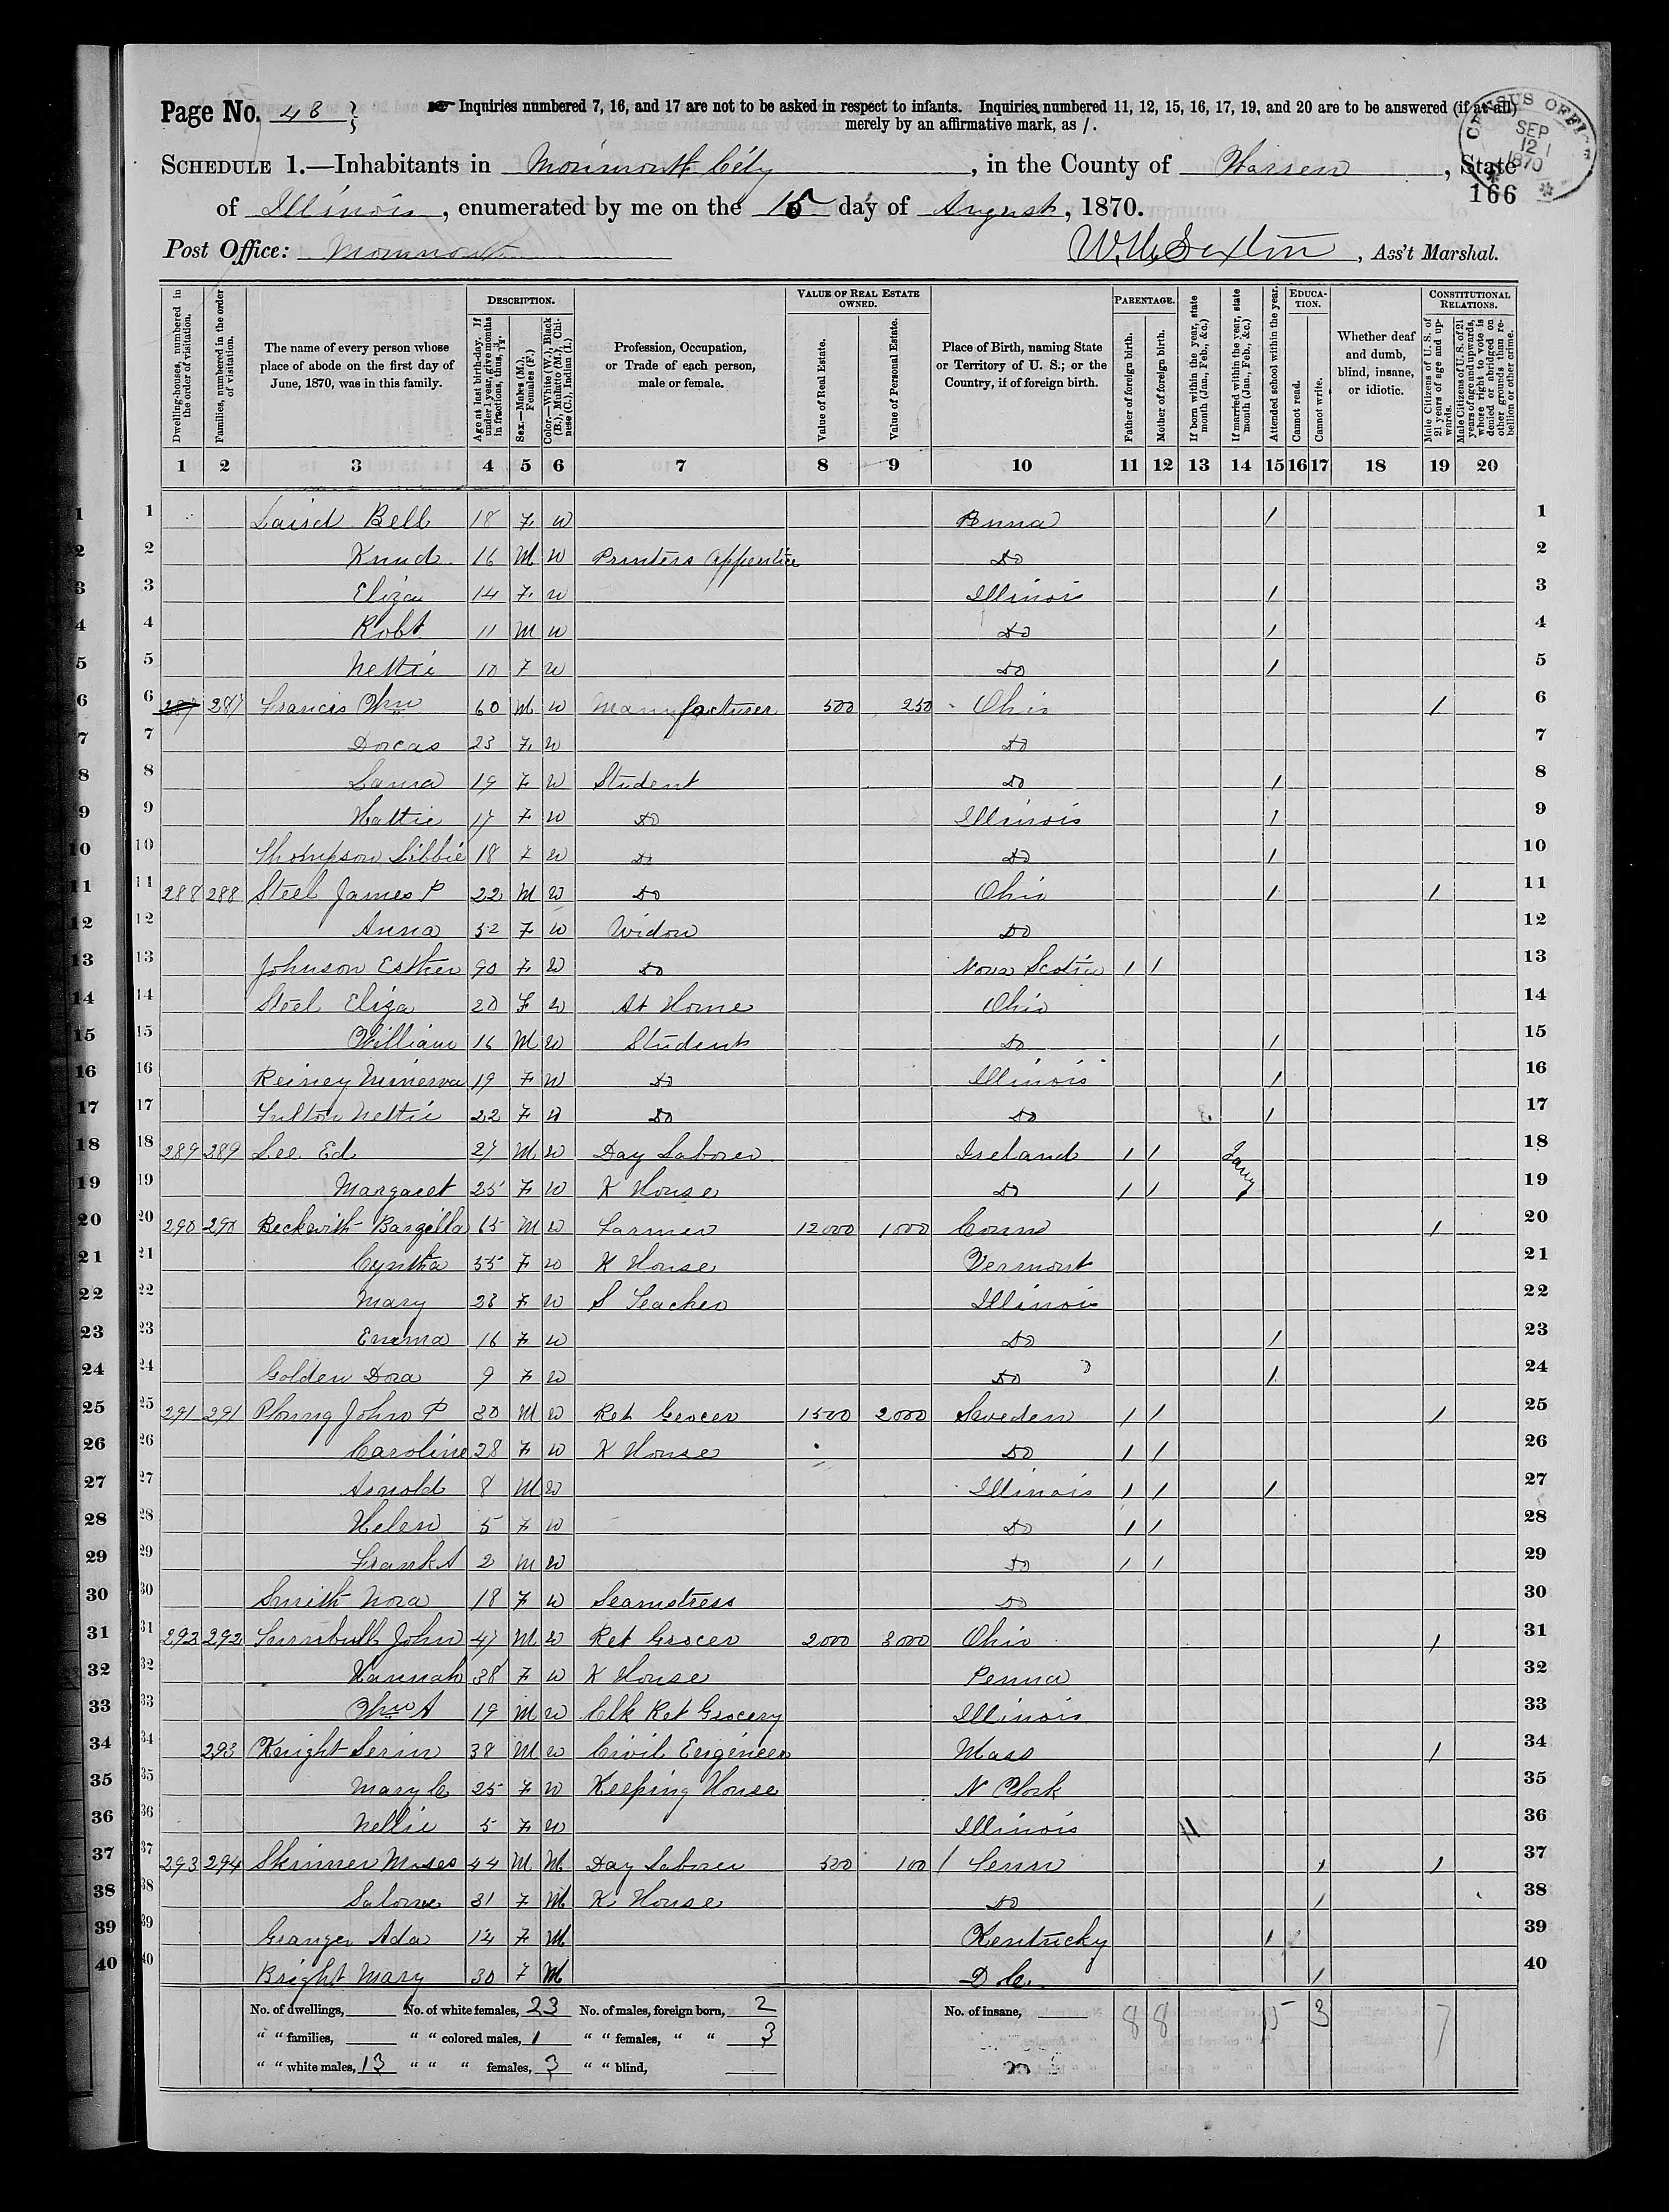 Page No. 48
Inquiries numbered 7, 16, and 17 are not to be asked in respect to infants. Inquiries numbered 11, 12, 15, 16, 17, 19, and 20 are to be answered (if at all)
merely by an affirmative mark, as /.
CENSUS OFFICE SEP 12 1870
SCHEDULE 1.—Inhabitants in Monmouth City, in the County of Warren, State
166
of Illinois, enumerated by me on the 15 day of August, 1870.
Post Office: Monmouth W. H. Sexton, Ass't Marshal.
Dwelling-houses, numbered in the order of visitation.
Families, numbered in the order of visitation.
The name of every person whose place of abode on the first day of June, 1870, was in this family.
DESCRIPTION.
Age at last birth-day. If under 1 year, give months in fractions, thus, 3/12.
Sex.—Males (M.), Females (F.)
Color.—White (W.), Black (B.), Mulatto (M.), Chinese (C.), Indian (I.)
Profession, Occupation, or Trade of each person, male or female.
VALUE OF REAL ESTATE OWNED.
Value of Real Estate.
Value of Personal Estate.
Place of Birth, naming State or Territory of U. S.; or the Country, if of foreign birth.
PARENTAGE.
Father of foreign birth.
Mother of foreign birth.
If born within the year, state month (Jan., Feb., &c.)
If married within the year, state month (Jan., Feb., &c.)
Attended school within the year.
EDUCATION.
Cannot read.
Cannot write.
Whether deaf and dumb, blind, insane, or idiotic.
CONSTITUTIONAL RELATIONS.
Male Citizens of U. S. of 21 years of age and upwards.
Male Citizens of U. S. of 21 years of age and upwards, whose right to vote is denied or abridged on other grounds than rebellion or other crime.
1 2 3 4 5 6 7 8 9 10 11 12 13 14 15 16 17 18 19 20
1 Laird Bell 18 F W Penna / 1
2 16 M W Printers Appentice Do 2
3 Eliza 14 F W Illinois / 3
4 Robt 11 M W Do / 4
5 Nettie 10 F W Do / 5
6 287 287 Francis Wm 60 M W Manufacturer 500 250 Ohio / 6
7 Dorcas 23 F W Do 7
8 Laura 19 F W Student Do / 8
9 Hattie 17 F W Do Illinois / 9
10 Thompson Libbie 18 F W Do Do / 10
11 288 288 Steel James P 22 M W Do Ohio / / 11
12 Anna 52 F W Widow Do 12
13 Johnson Esther 90 F W Do Nova Scotia / / 13
14 Steel Eliza 20 F W At Home Ohio 14
15 William 16 M W Student Do / 15
16 Reiney Minerva 19 F W Do Illinois / 16
17 Fulton Nettie 22 F W Do Do / 17
18 289 289 Lee Ed 27 M W Day Laborer Ireland / / Jany 18
19 Margaret 25 F W K House Do / / 19
20 290 290 Beckwith Bargilla 65 M W Farmer 12000 1000 Conn / 20
21 Cyntha 55 F W K House Vermont 21
22 Mary 23 F W S Teacher Illinois 22
23 Emma 16 F W Do / 23
24 Golden Dora 9 F W Do / 24
25 291 291 John P 30 M W Ret Grocer 1500 2000 Sweden / / / 25
26 Caroline 28 F W K House Do / / 26
27 Arnold 8 M W Illinois / / / 27
28 Helen 5 F W Do / / 28
29 Frank A 2 M W Do / / 29
30 Smith Nora 18 F W Seamstress Do 30
31 292 292 Turnbull John 47 M W Ret Grocer 2000 3000 Ohio / 31
32 Hannah 38 F W K House Penna 32
33 Wm A 19 M W Clk Ret Grocery Illinois 33
34 293 Knight 38 M W Civil Engineer Mass / 34
35 Mary C 25 F W Keeping House N York 35
36 Nellie 5 F W Illinois 36
37 293 294 Skinner Moses 44 M M Day Laborer 500 100 / Tenn / / 37
38 Salome 31 F M K House Do / 38
39 Granger Ada 12 F M Kentucky / 39
40 Bright Mary 30 F M D C. / 40
No. of dwellings, No. of white females, 23 No. of males, foreign born, 2 No. of insane, 8 8 15 3 7
" " families, " " colored males, 1 " " females, " " 3
" " white males, 13 " " " females, 3 " " blind,